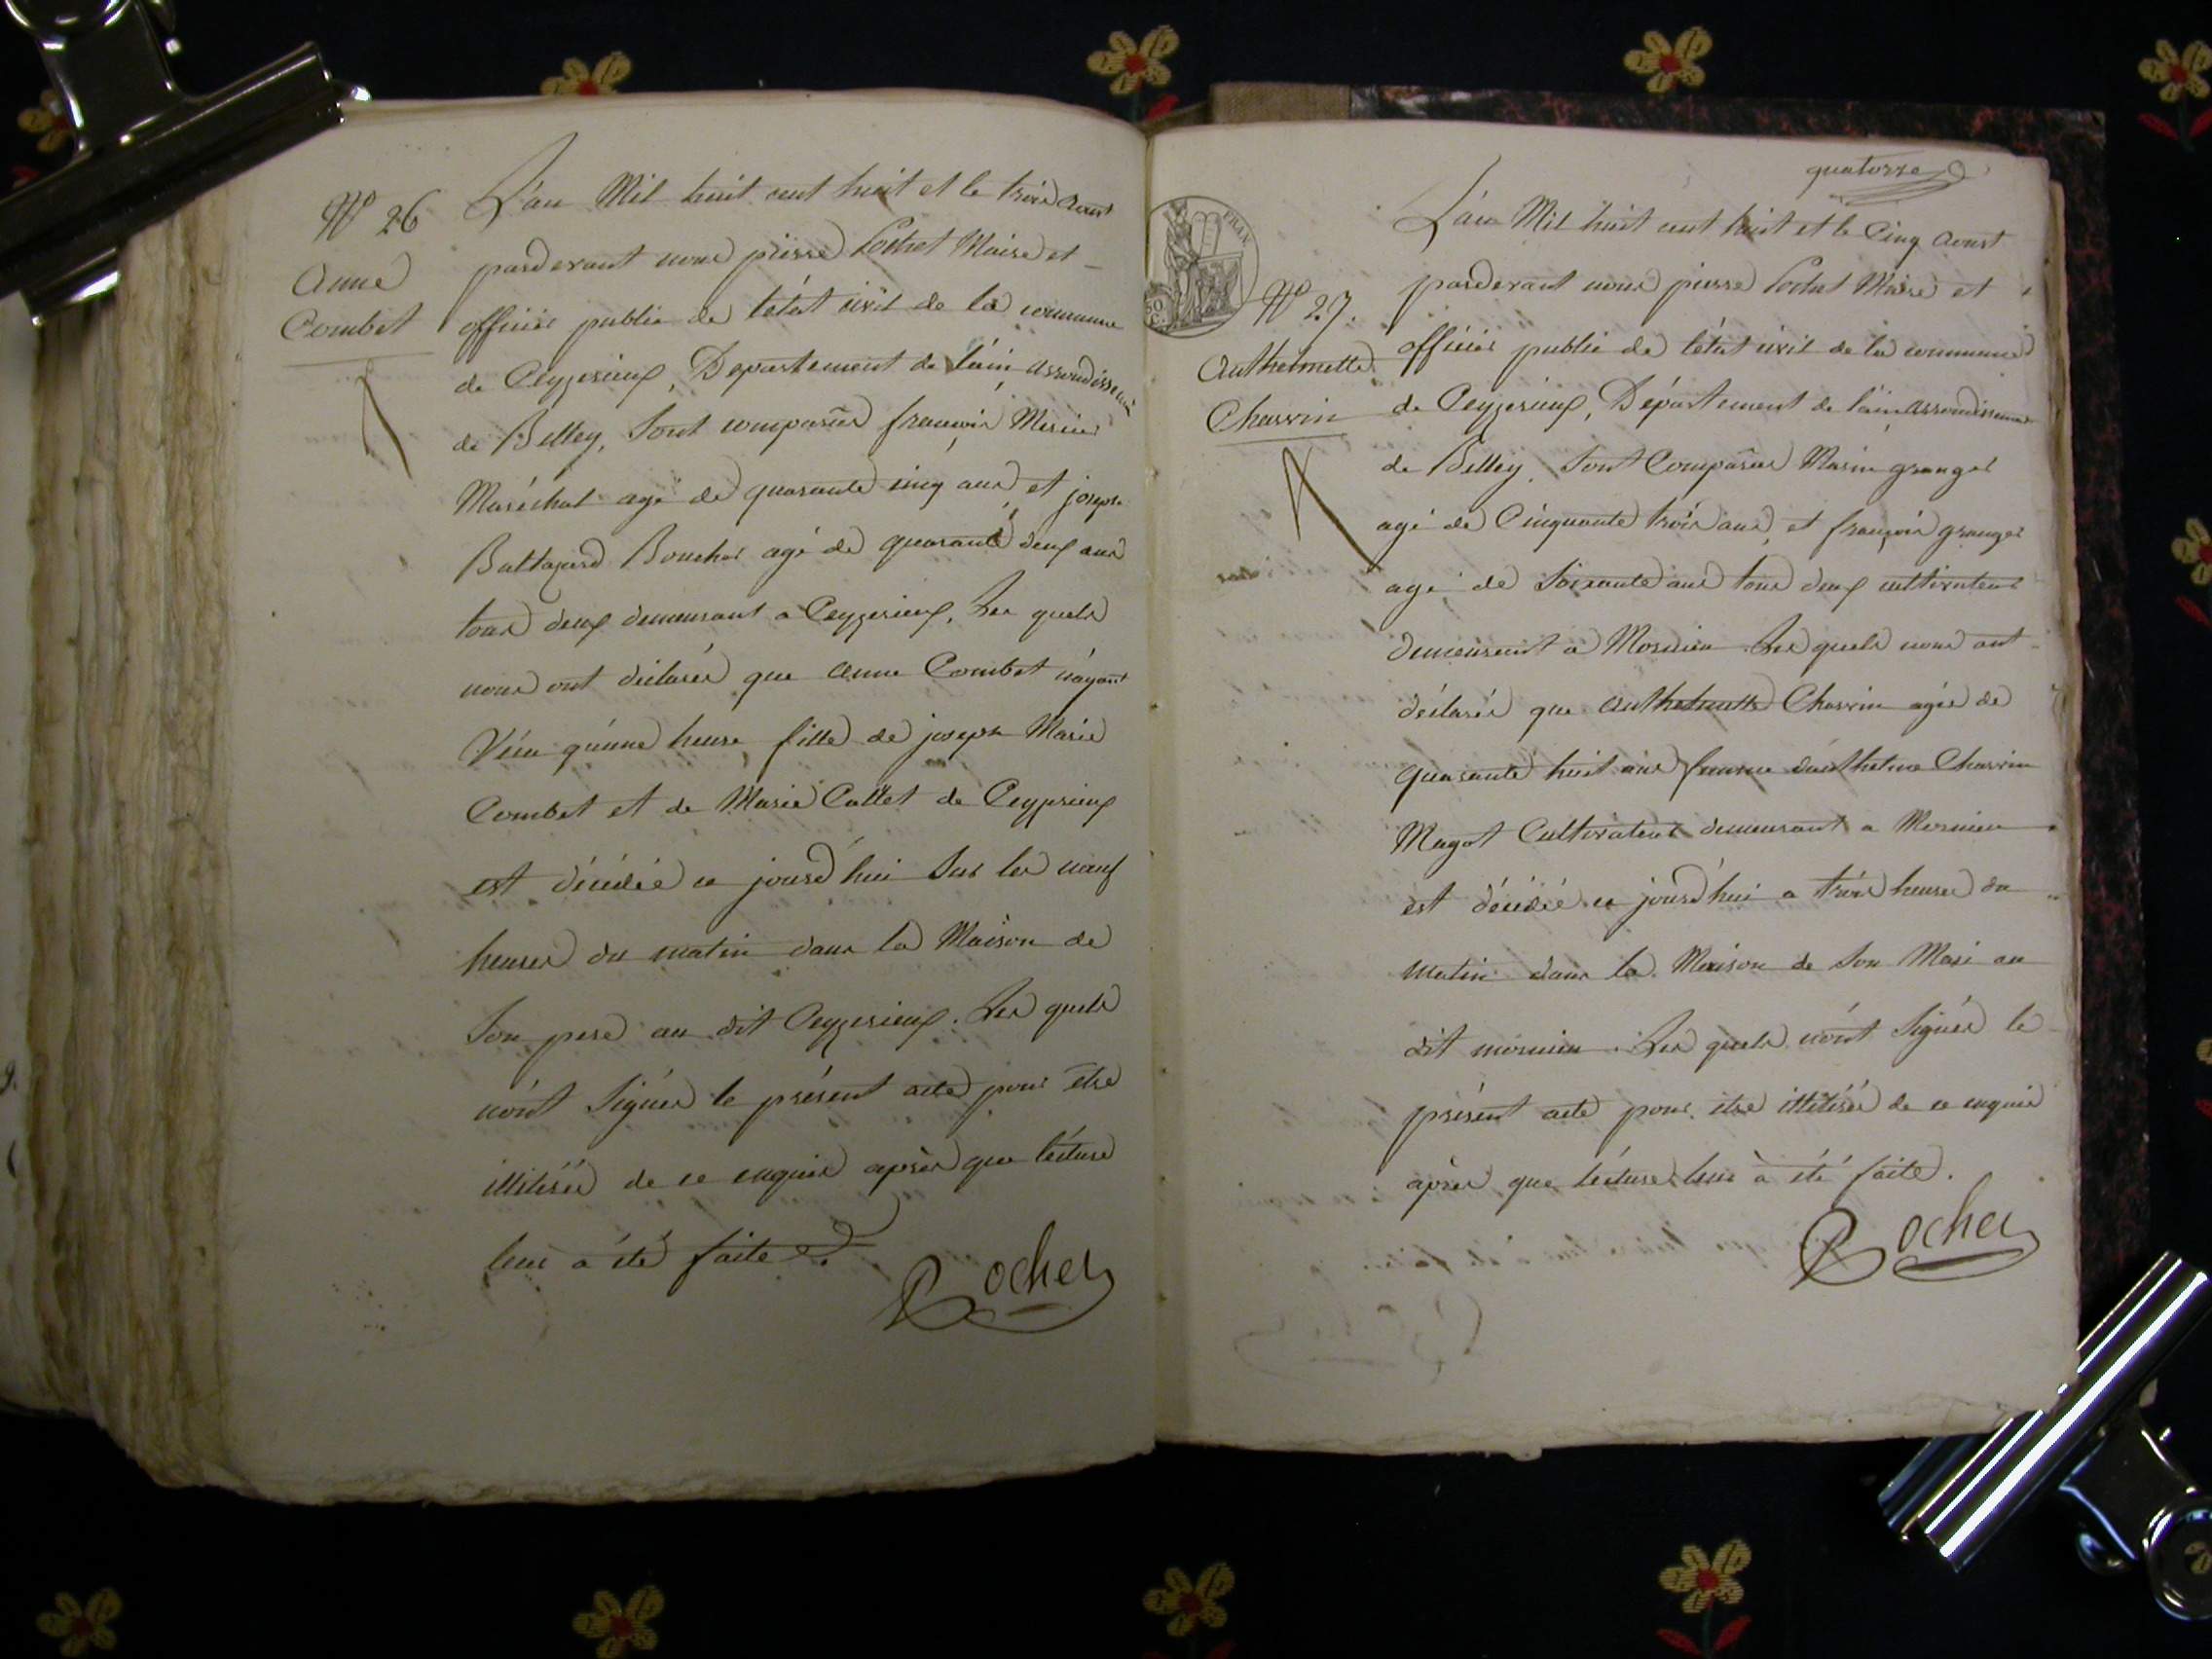 Nº 26
Anne
Combet
L'an Mil huit cent huit et le trois Aoust
pardevant nous pierre Rochet Maire et
officier public de l'état civil de la commune
de Ceyzerieux, Departement de l'ain, arrondissement
de Belley, Sont comparus françois Merier
Maréchal agé de quarante cinq ans, et joseph
Baltazard Boucher agé de quarante deux ans
tous deux demeurant a Ceyzerieux, Les quels
nous ont déclarés que anne Combet n'ayant
Vécu qu'une heure, fille de joseph Marie
Combet et de Marie Callet de Ceyzerieux
est décédée ce jourd'hui Sur les neuf
heures du matin dans la Maison de
Son pere au dit Ceyzerieux. Les quels
n'ont Signés le présent acte pour etre
illitérés de ce enquis après que lécture
leur a été faite.
Rocher
quatorze
FRAN
50
C.
Nº 27.
Anthelmette
Charvin
L'an Mil huit cent huit et le Cinq Aoust
pardevant nous pierre Rochet Maire et
officier public de l'état civil de la commune
de Ceyzerieux, Département de l'ain, arrondissement
de Belley, Sont Comparus Marin granger
agé de Cinquante trois ans, et françois granger
agé de Soixante ans tous deux cultivateurs
demeurant a Mornieu Les quels nous ont
déclarés que anthelmette Charvin agée de
quarante huit ans femme d'anthelme Charvin
Magot Cultivateur demeurant a Mornieu
est décédée ce jourd'hui a trois heures du
matin dans la Maison de Son Mari au
dit mornieu. Les quels n'ont Signés le
présent acte pour etre illitérés de ce enquis
après que lécture leur à été faite.
Rocher